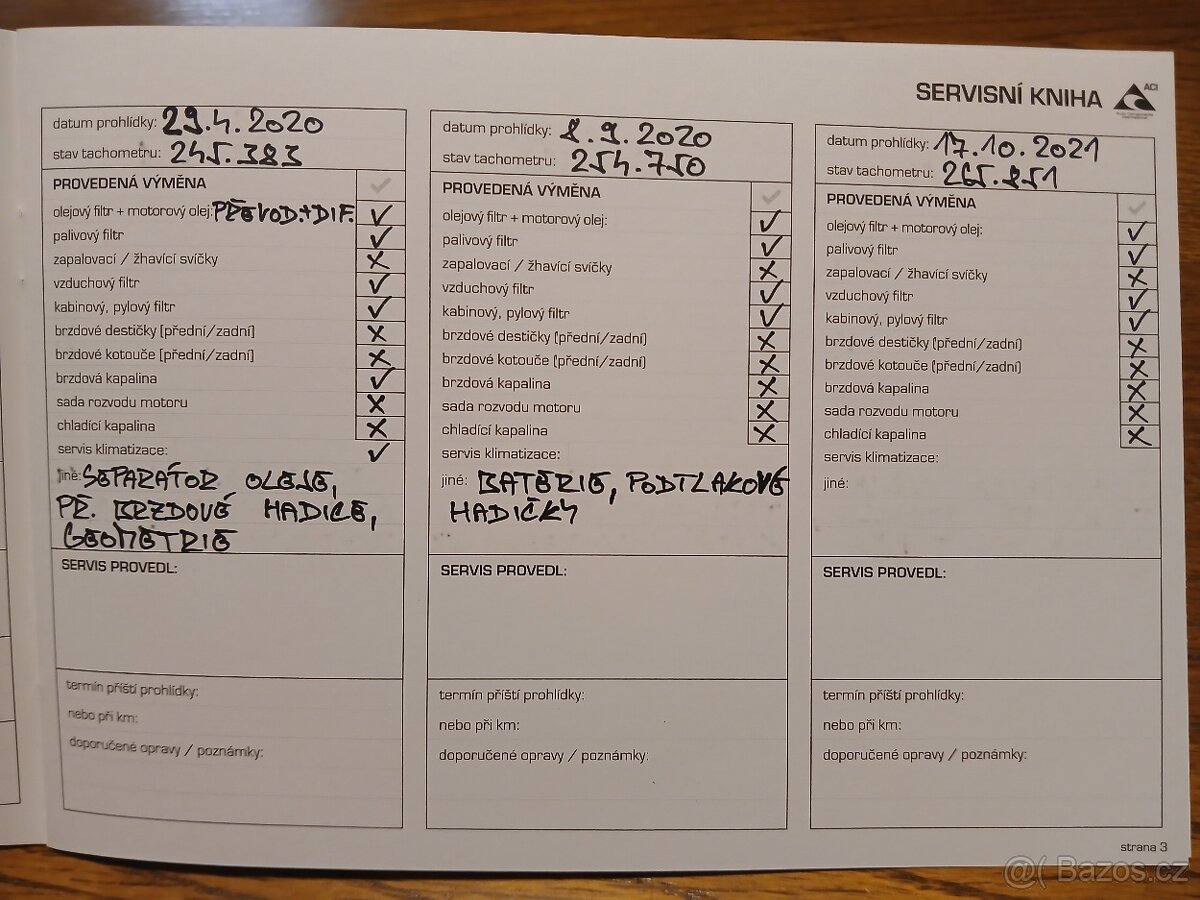 SERVISNÍ KNIHA
ACI
datum prohlídky: 29.4.2020
stav tachometru: 245.383
PROVEDENÁ VÝMĚNA ✓
olejový filtr + motorový olej: PŘEVOD.+DIF. ✓
palivový filtr ✓
zapalovací / žhavící svíčky X
vzduchový filtr ✓
kabinový, pylový filtr ✓
brzdové destičky [přední/zadní] X
brzdové kotouče [přední/zadní] X
brzdová kapalina ✓
sada rozvodu motoru X
chladící kapalina X
servis klimatizace: ✓
jiné: SEPARÁTOR OLEJE,
PŘ. BRZDOVÉ HADICE,
GEOMETRIE
SERVIS PROVEDL:
termín příští prohlídky:
nebo při km:
doporučené opravy / poznámky:
datum prohlídky: 8.9.2020
stav tachometru: 254.750
PROVEDENÁ VÝMĚNA ✓
olejový filtr + motorový olej: ✓
palivový filtr ✓
zapalovací / žhavící svíčky X
vzduchový filtr ✓
kabinový, pylový filtr ✓
brzdové destičky (přední/zadní) X
brzdové kotouče (přední/zadní) X
brzdová kapalina X
sada rozvodu motoru X
chladící kapalina X
servis klimatizace:
jiné: BATERIE, PODTLAKOVÉ
HADIČKY
SERVIS PROVEDL:
termín příští prohlídky:
nebo při km:
doporučené opravy / poznámky:
datum prohlídky: 17.10.2021
stav tachometru: 265.851
PROVEDENÁ VÝMĚNA ✓
olejový filtr + motorový olej: ✓
palivový filtr ✓
zapalovací / žhavící svíčky X
vzduchový filtr ✓
kabinový, pylový filtr ✓
brzdové destičky (přední/zadní) X
brzdové kotouče (přední/zadní) X
brzdová kapalina X
sada rozvodu motoru X
chladící kapalina X
servis klimatizace:
jiné:
SERVIS PROVEDL:
termín příští prohlídky:
nebo při km:
doporučené opravy / poznámky:
strana 3
@( Bazos.cz